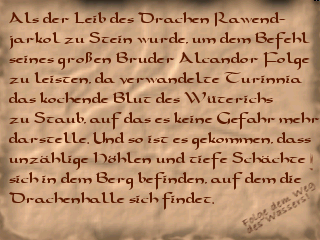 Als der Leib des Drachen Rawend-
jarkol zu Stein wurde, um dem Befehl
seines großen Bruder Alcandor Folge
zu leisten, da verwandelte Turinnia
das kochende Blut des Wüterichs
zu Staub, auf das es keine Gefahr mehr
darstelle. Und so ist es gekommen, dass
unzählige Höhlen und tiefe Schächte
sich in dem Berg befinden, auf dem die
Drachenhalle sich findet.
Folge dem Weg
des Wassers!